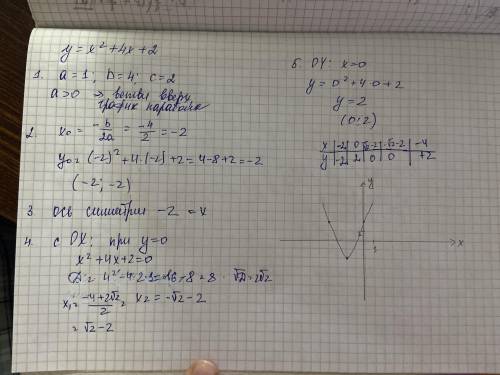 y = x² + 4x + 2
1. a = 1; b = 4; c = 2
a > 0 → ветви вверх
график парабола
2. x₀ = -b/2a = -4/2 = -2
y₀ = (-2)² + 4·(-2) + 2 = 4 - 8 + 2 = -2
(-2; -2)
3. ось симметрии -2 = x
4. с OX: при y = 0
x² + 4x + 2 = 0
D = 4² - 4·2·1 = 16 - 8 = 8 √D = 2√2
x₁ = (-4 + 2√2)/2 = x₂ = -√2 - 2
= √2 - 2
5. OY: x = 0
y = 0² + 4·0 + 2
y = 2
(0; 2)
x | -2 | 0 | √2-2 | -√2-2 | -4
y | -2 | 2 | 0 | 0 | +2
y
x
1